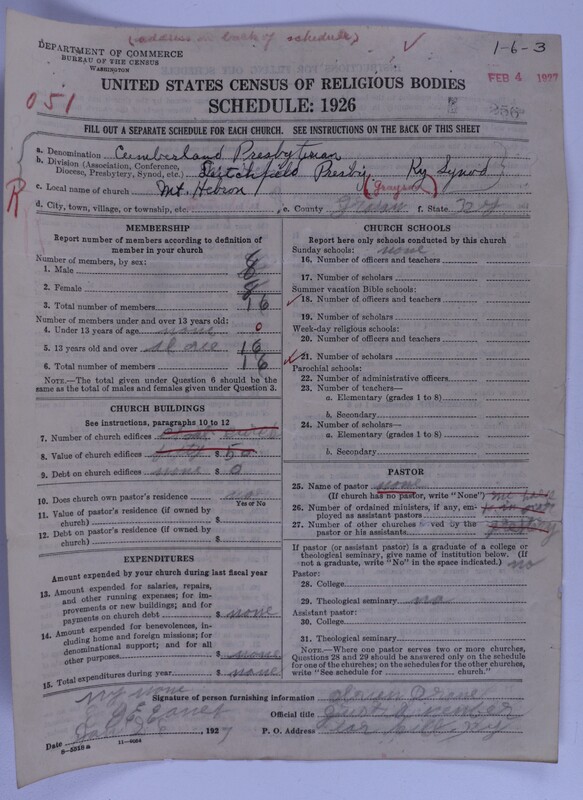 (address on back of schedule)
DEPARTMENT OF COMMERCE
BUREAU OF THE CENSUS
WASHINGTON
1-6-3
FEB 4 1927
051
UNITED STATES CENSUS OF RELIGIOUS BODIES
SCHEDULE: 1926
FILL OUT A SEPARATE SCHEDULE FOR EACH CHURCH. SEE INSTRUCTIONS ON THE BACK OF THIS SHEET
R
a. Denomination Cumberland Presbyterian
b. Division (Association, Conference, Diocese, Presbytery, Synod, etc.) Leitchfield Presby. Ky Synod
c. Local name of church Mt. Hebron (Grayson)
d. City, town, village, or township, etc. e. County f. State Ky
MEMBERSHIP
Report number of members according to definition of member in your church
Number of members, by sex:
1. Male 8
2. Female 8
3. Total number of members 16
Number of members under and over 13 years old:
4. Under 13 years of age none 0
5. 13 years old and over 16
6. Total number of members 16
NOTE.—The total given under Question 6 should be the same as the total of males and females given under Question 3.
CHURCH BUILDINGS
See instructions, paragraphs 10 to 12
7. Number of church edifices
8. Value of church edifices fifty $ 50
9. Debt on church edifices none $ 0
10. Does church own pastor's residence
Yes or No
11. Value of pastor's residence (if owned by church) $
12. Debt on pastor's residence (if owned by church) $
EXPENDITURES
Amount expended by your church during last fiscal year
13. Amount expended for salaries, repairs, and other running expenses; for improvements or new buildings; and for payments on church debt $ none
14. Amount expended for benevolences, including home and foreign missions; for denominational support; and for all other purposes $ none
15. Total expenditures during year $ none
CHURCH SCHOOLS
Report here only schools conducted by this church
Sunday schools: none
16. Number of officers and teachers
17. Number of scholars
Summer vacation Bible schools:
18. Number of officers and teachers
19. Number of scholars
Week-day religious schools:
20. Number of officers and teachers
21. Number of scholars
Parochial schools:
22. Number of administrative officers
23. Number of teachers—
a. Elementary (grades 1 to 8)
b. Secondary
24. Number of scholars—
a. Elementary (grades 1 to 8)
b. Secondary
PASTOR
25. Name of pastor none
(If church has no pastor, write "None")
26. Number of ordained ministers, if any, employed as assistant pastors
27. Number of other churches served by the pastor or his assistants
If pastor (or assistant pastor) is a graduate of a college or theological seminary, give name of institution below. (If not a graduate, write "No" in the space indicated.) no
Pastor:
28. College
29. Theological seminary no
Assistant pastor:
30. College
31. Theological seminary
NOTE.—Where one pastor serves two or more churches, Questions 28 and 29 should be answered only on the schedule for one of the churches; on the schedules for the other churches, write "See schedule for church."
Signature of person furnishing information
Official title
Date , 1927 P. O. Address
8-5318a 11-4054